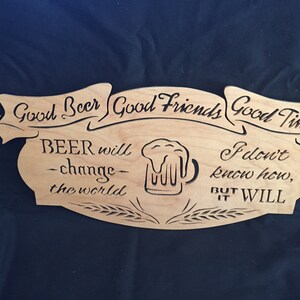 Good Beer Good Friends Good Tim
BEER will
- change -
the world
I don't
know how,
BUT IT WILL